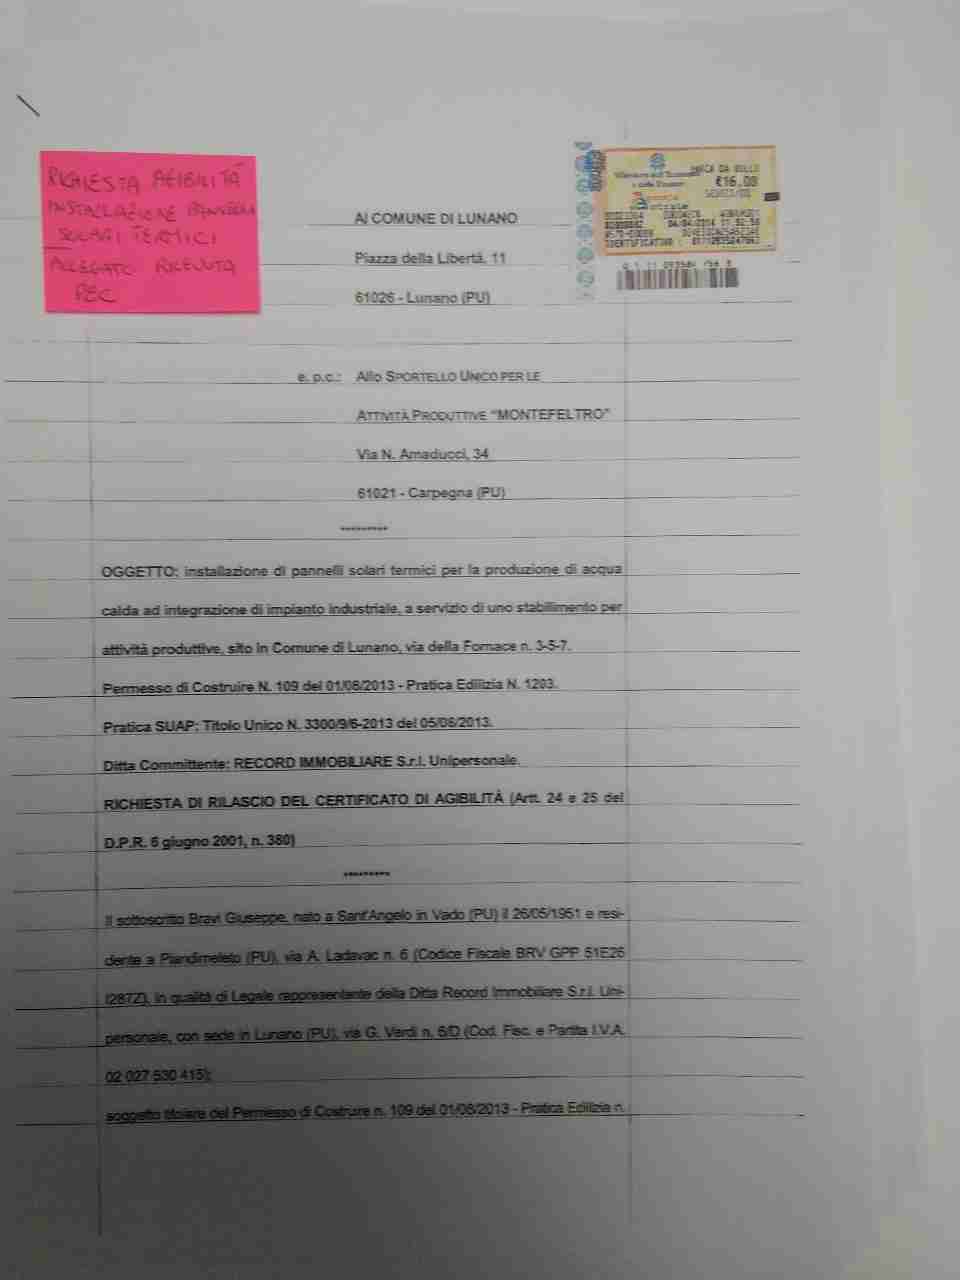 RICHIESTA AGIBILITÀ
INSTALLAZIONE PANNELLI
SOLARI TERMICI
ALLEGATO RICEVUTA
PEC
MARCA DA BOLLO
€16,00
Al COMUNE DI LUNANO
Piazza della Libertà, 11
61026 - Lunano (PU)
e. p.c.: Allo SPORTELLO UNICO PER LE
ATTIVITÀ PRODUTTIVE "MONTEFELTRO"
Via N. Amaducci, 34
61021 - Carpegna (PU)
*********
OGGETTO: installazione di pannelli solari termici per la produzione di acqua
calda ad integrazione di impianto industriale, a servizio di uno stabilimento per
attività produttive, sito in Comune di Lunano, via della Fornace n. 3-5-7.
Permesso di Costruire N. 109 del 01/08/2013 - Pratica Edilizia N. 1203.
Pratica SUAP: Titolo Unico N. 3300/9/6-2013 del 05/08/2013.
Ditta Committente: RECORD IMMOBILIARE S.r.l. Unipersonale.
RICHIESTA DI RILASCIO DEL CERTIFICATO DI AGIBILITÀ (Artt. 24 e 25 del
D.P.R. 6 giugno 2001, n. 380)
*********
Il sottoscritto Bravi Giuseppe, nato a Sant'Angelo in Vado (PU) il 26/05/1951 e resi-
dente a Piandimeleto (PU), via A. Ladavac n. 6 (Codice Fiscale BRV GPP 51E26
I287Z), in qualità di Legale rappresentante della Ditta Record Immobiliare S.r.l. Uni-
personale, con sede in Lunano (PU), via G. Verdi n. 6/D (Cod. Fisc. e Partita I.V.A.
02 027 530 415);
soggetto titolare del Permesso di Costruire n. 109 del 01/08/2013 - Pratica Edilizia n.